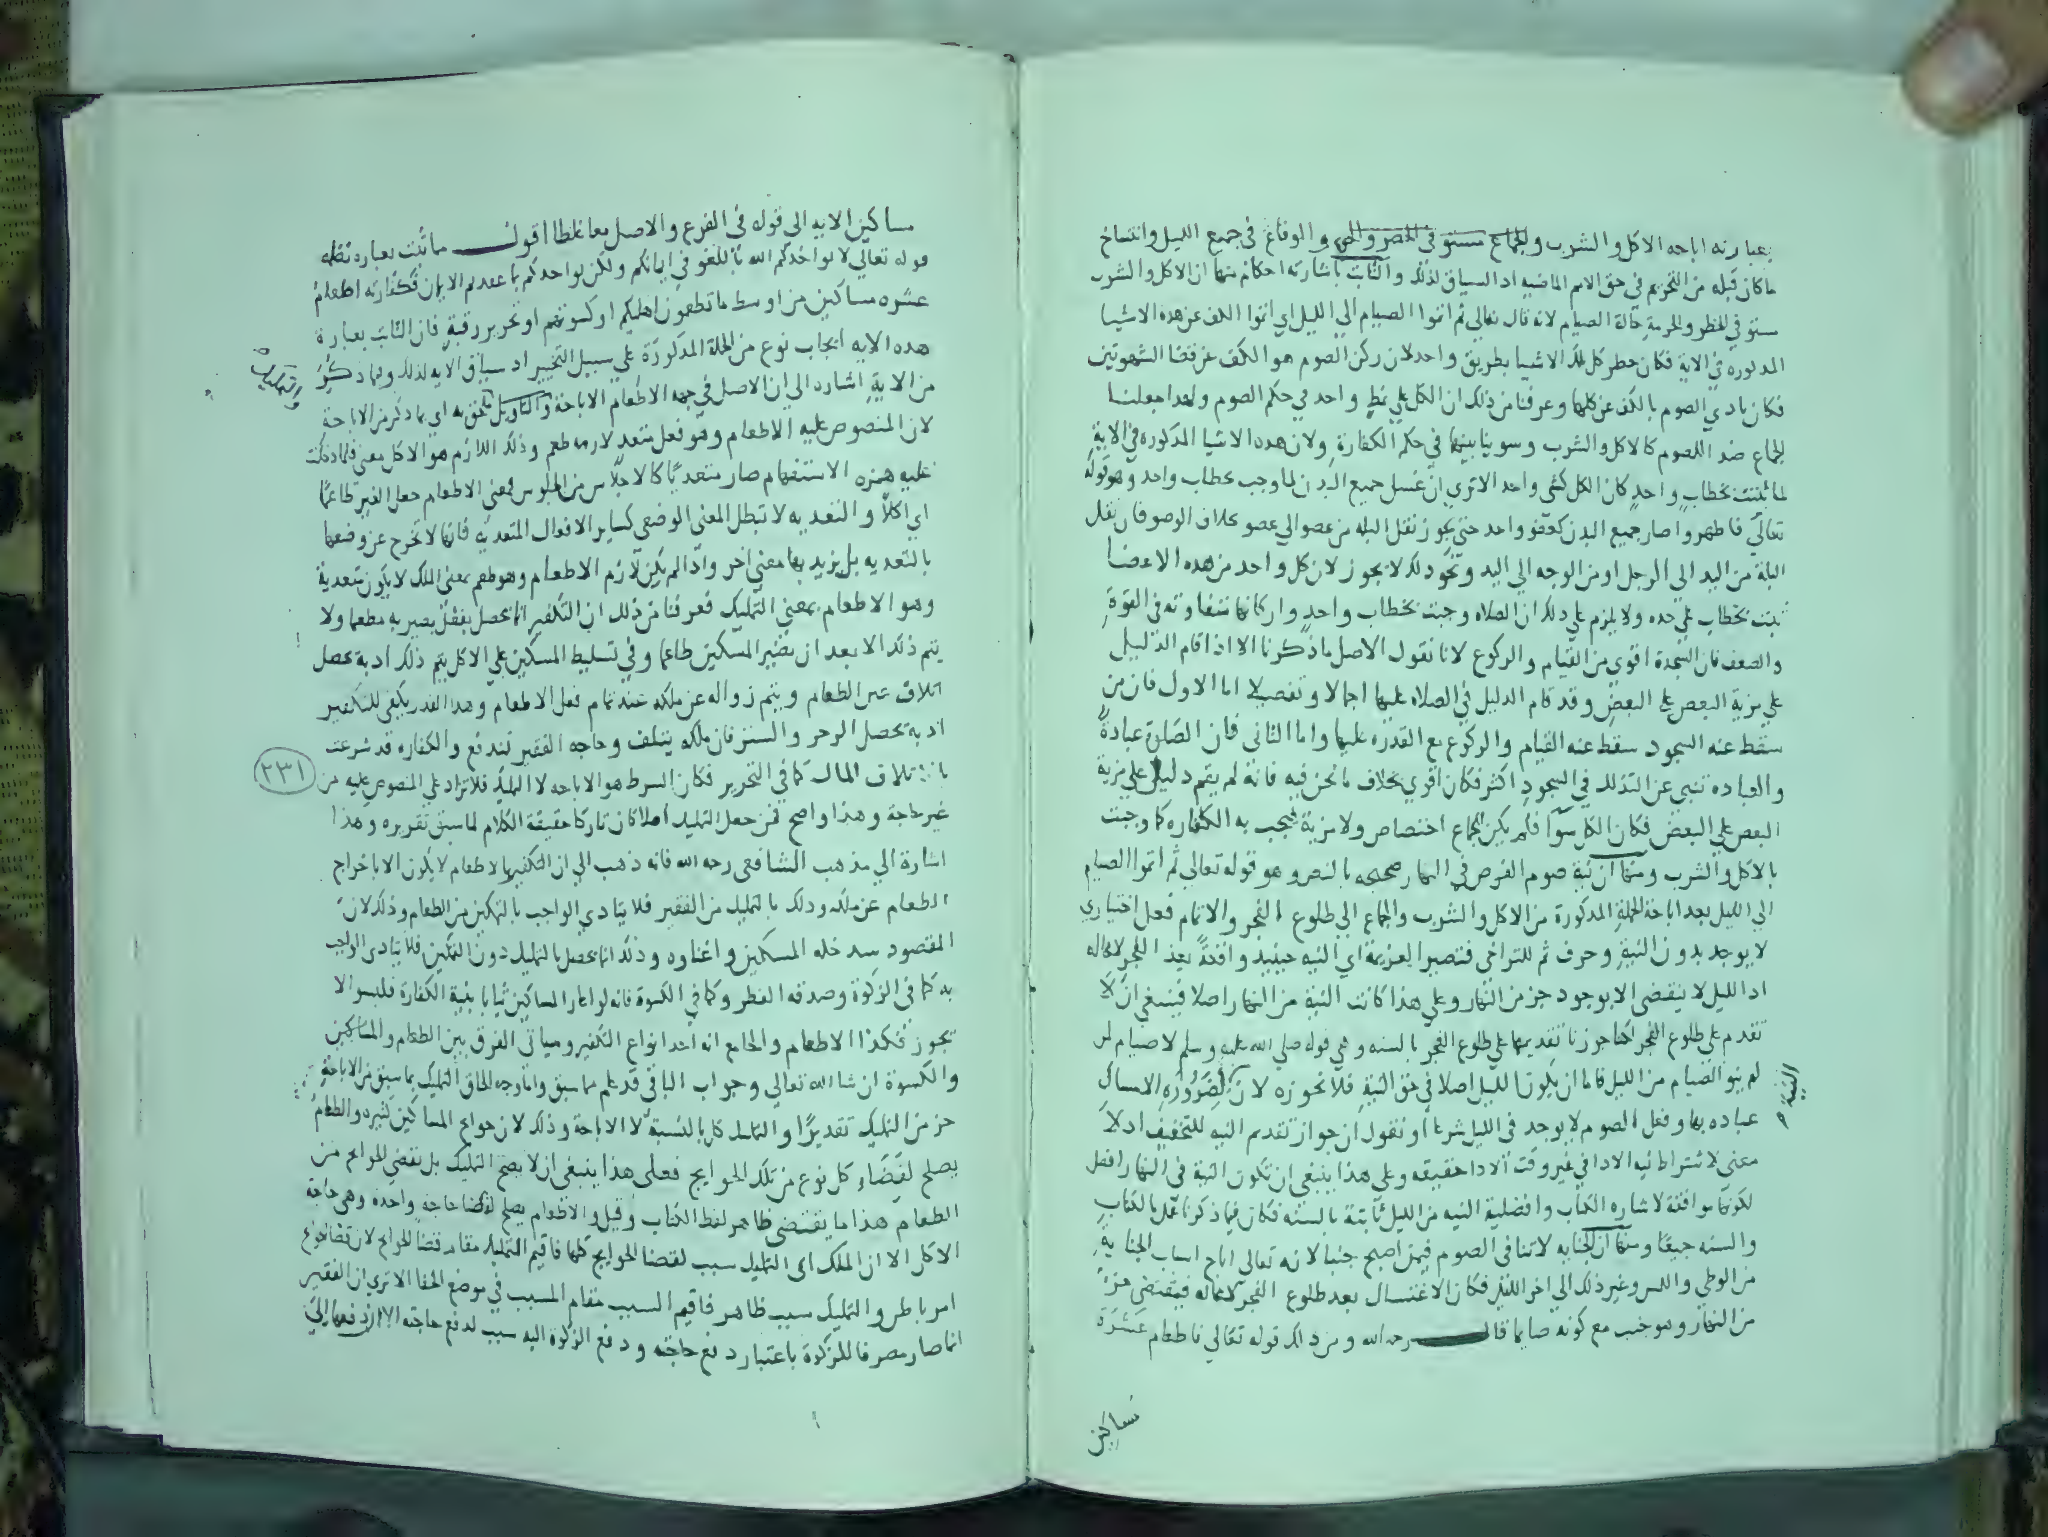 بعبارته اباحه الاكل والشرب والجماع مستو في الحضر والحرمه والوقاع في جميع الليل وانتساخ
ما كان قبله من التحريم في حق الامم الماضيه اد السياق لذلك والثابت باشارته احكام منها ان الاكل والشرب
مستو في الحظر والحرمة حالة الصيام لانه قال تعالى ثم اتموا الصيام الي الليل اي اتموا الكف عن هده الاشيا
المدكوره في الاية فكان حظر كل هذه الاشيا بطريق واحد لان ركن الصوم هو الكف عن قضا الشهوتين
فكان تادي الصوم بالكف عن كلها وعرفنا من ذلك ان الكل على نمط واحد في حكم الصوم ولهدا جعلنا
الجماع ضد الصوم كالاكل والشرب وسوينا بينها في حكم الكفارة ولان هده الاشيا المدكوره في الاية
لما ثبتت بخطاب واحد كان الكل كشي واحد الا تري ان غسل جميع البدن لما وجب بخطاب واحد وهو قوله
تعالى فاطهروا صار جميع البدن كعضو واحد حتى يجوز نقل البله من عضو الى عضو بخلاف الوضو فان نقل
البلة من اليد الى الرجل او من الوجه الي اليد ونحو دلك لا يجوز لان كل واحد من هده الاعضا
ثبت بخطاب على حده ولا يلزم على دلك ان الصلاه وجبت بخطاب واحد واركانها متفاوته في القوة
والضعف فان السجدة اقوى من القيام والركوع لانا نقول الاصل ما ذكرنا الا اذا قام الدليل
على مزية البعض على البعض وقد قام الدليل في الصلاه عليها اجمالا وتفصيلا اما الاول فان من
سقط عنه السجود سقط عنه القيام والركوع مع القدره عليها واما الثاني فان الصلوة عبادة
والعباده تنبي عن التذلل في السجود اكثر فكان اقوي بخلاف ما نحن فيه فانه لم يقم دليل على مزية
البعض على البعض فكان الكل سوا فلم يكن للجماع اختصاص ولا مزية فيجب به الكفاره كما وجبت
بالاكل والشرب ومنها ان نية صوم الفرض في النهار صحيحه بالنص وهو قوله تعالى ثم اتموا الصيام
الي الليل بعد اباحة الجملة المدكورة من الاكل والشرب والجماع الي طلوع الفجر والاتمام فعل اختياري
لا يوجد بدون النية وحرف ثم للتراخي فتصير العزيمة اي النيه حينيد واقعة بعد الفجر لا محاله
اد الليل لا ينقضى الا بوجود جز من النهار وعلى هذا كانت النية من النهار اصلا فينبغي ان لا
تقدم على طلوع الفجر لكنا جوزنا تقديمها على طلوع الفجر بالسنه وهي قوله صلى الله عليه وسلم لا صيام لمن
لم ينو الصيام من الليل فاما ان يكون الليل اصلا في حق النية فلا نجوزه لان لضروره الامساك
عباده بها وفعل الصوم لا يوجد في الليل شرعا او نقول ان جواز تقديم النيه للتخفيف اد لا
معنى لاشتراط نيه الادا في غير وقت الادا حقيقه وعلى هذا ينبغي ان تكون النية في النهار افضل
لكونها موافقة لاشاره الكتاب وافضلية النيه من الليل ثابتة بالسنه فكان فيما ذكرنا عمل بالكتاب
والسنه جميعا ومنها ان الجنابه لا تنافي الصوم فيمن اصبح جنبا لانه تعالى اباح اسباب الجنابة
من الوطي واللمس وغير ذلك الي اخر الليل فكان الاغتسال بعد طلوع الفجر لا محاله فيقتضي جزءا
من النهار وهو جنب مع كونه صايما قال رحمه الله ومن دلك قوله تعالى فاطعام عشرة
النية
مساكين
مساكين الايه الى قوله في الفرع والاصل معا غلطا اقول ما ثبت بعباره نظم
قوله تعالى لا يواخذكم الله باللغو في ايمانكم ولكن يواخدكم بما عقدتم الايمان فكفارته اطعام
عشره مساكين من اوسط ما تطعمون اهليكم او كسوتهم او تحرير رقبة فان الثابت بعبارة
هده الايه ايجاب نوع من الجملة المذكورة علي سبيل التخيير اد سياق الايه لذلك وفيما ذكر
من الاية اشاره الي ان الاصل في جهه الاطعام الاباحة والتمليك ملحق به اي بما ذكر من الاباحة
والتمليك
لان المنصوص عليه الاطعام وهو فعل متعد لازمه طعم وذلك اللازم هو الاكل معنى فلما دخلت
عليه همزه الاستفهام صار متعديا كالاجلاس من الجلوس فمعنى الاطعام جعل الغير طاعما
اي اكلا والتعديه لا تبطل المعنى الوضعي كساير الافعال المتعديه فانها لا تخرج عن وضعها
بالتعديه بل يزيد بها معنى اخر واذا لم يكن لازم الاطعام وهو طعم بمعنى الملك لا يكون متعدية
وهو الاطعام بمعنى التمليك فعرفنا من ذلك ان التكفير انما يحصل بفعل يصير به مطعما ولا
يتم ذلك الا بعد ان يصير المسكين طاعما وفي تسليط المسكين على الاكل يتم ذلك اد به يحصل
اتلاف عين الطعام ويتم زواله عن ملكه عند تمام فعل الاطعام وهدا القدر يكفي للتكفير
اد به يحصل الزجر والستر فان ملكه يتلف وحاجه الفقير تندفع والكفاره قد شرعت
باتلاف المال كما في التحرير فكان الشرط هو الاباحه لا التمليك فلا تزاد على المنصوص عليه من
٢٣١
غير حاجة وهذا واضح فمن جعل التمليك اصلا كان تاركا حقيقة الكلام لما سبق تقريره وهذا
اشارة الي مذهب الشافعي رحمه الله فانه ذهب الي ان التكفير بالاطعام لا يكون الا باخراج
الطعام عن ملكه ودلك بالتمليك من الفقير فلا يتادي الواجب بالتمكين من الطعام وذلك لان
المقصود سد خله المسكين واغناوه وذلك انما يحصل بالتمليك دون التمكين فلا يتادى الواجب
به كما في الزكوة وصدقه الفطر وكما في الكسوة فانه لو اعار المساكين ثيابا بنية الكفارة فلبسوا لا
تجوز فكذا الاطعام والجامع انه احد انواع التكفير وسياتى الفرق بين الطعام والمساكين
والكسوة ان شا الله تعالي وجواب الباقي قد علم مما سبق واما وجه الحاق التمليك بما سبق من الاباحة
جز من التمليك تقديرا والتمليك كل بالنسبة لا الاباحة وذلك لان حوايج المساكين كثيره والطعام
يصلح لقضاء كل نوع من تلك الحوايج فعلى هذا ينبغى ان لا يصح التمليك بل بقضي الحوايج من
الطعام هذا ما يقتضى ظاهر لفظ الكتاب وقيل والاطعام يصلح لقضا حاجة واحدة وهى حاجة
الاكل الا ان الملك اى التمليك سبب لقضا الحوايج كلها فاقيم التمليك مقام قضا الحوايج لان قضا الحوايج
امر باطن والتمليك سبب ظاهر فاقيم السبب مقام المسبب في موضع الخفا الا تري ان الفقير
انما صار مصرفا للزكوة باعتبار دفع حاجته ودفع الزكوة اليه سبب لدفع حاجته الا ان دفعها الى